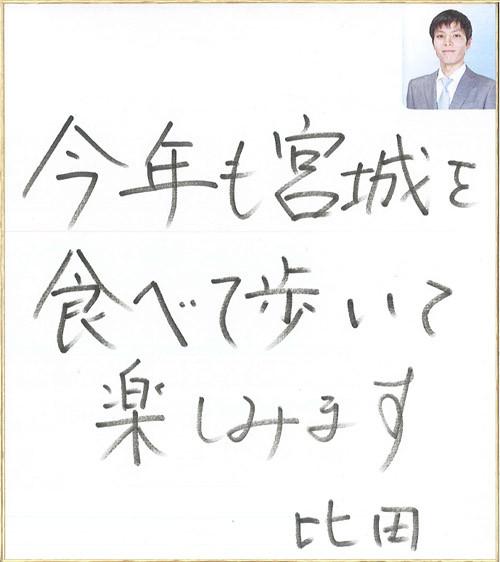 今年も宮城を
食べて歩いて
楽しみます
比田